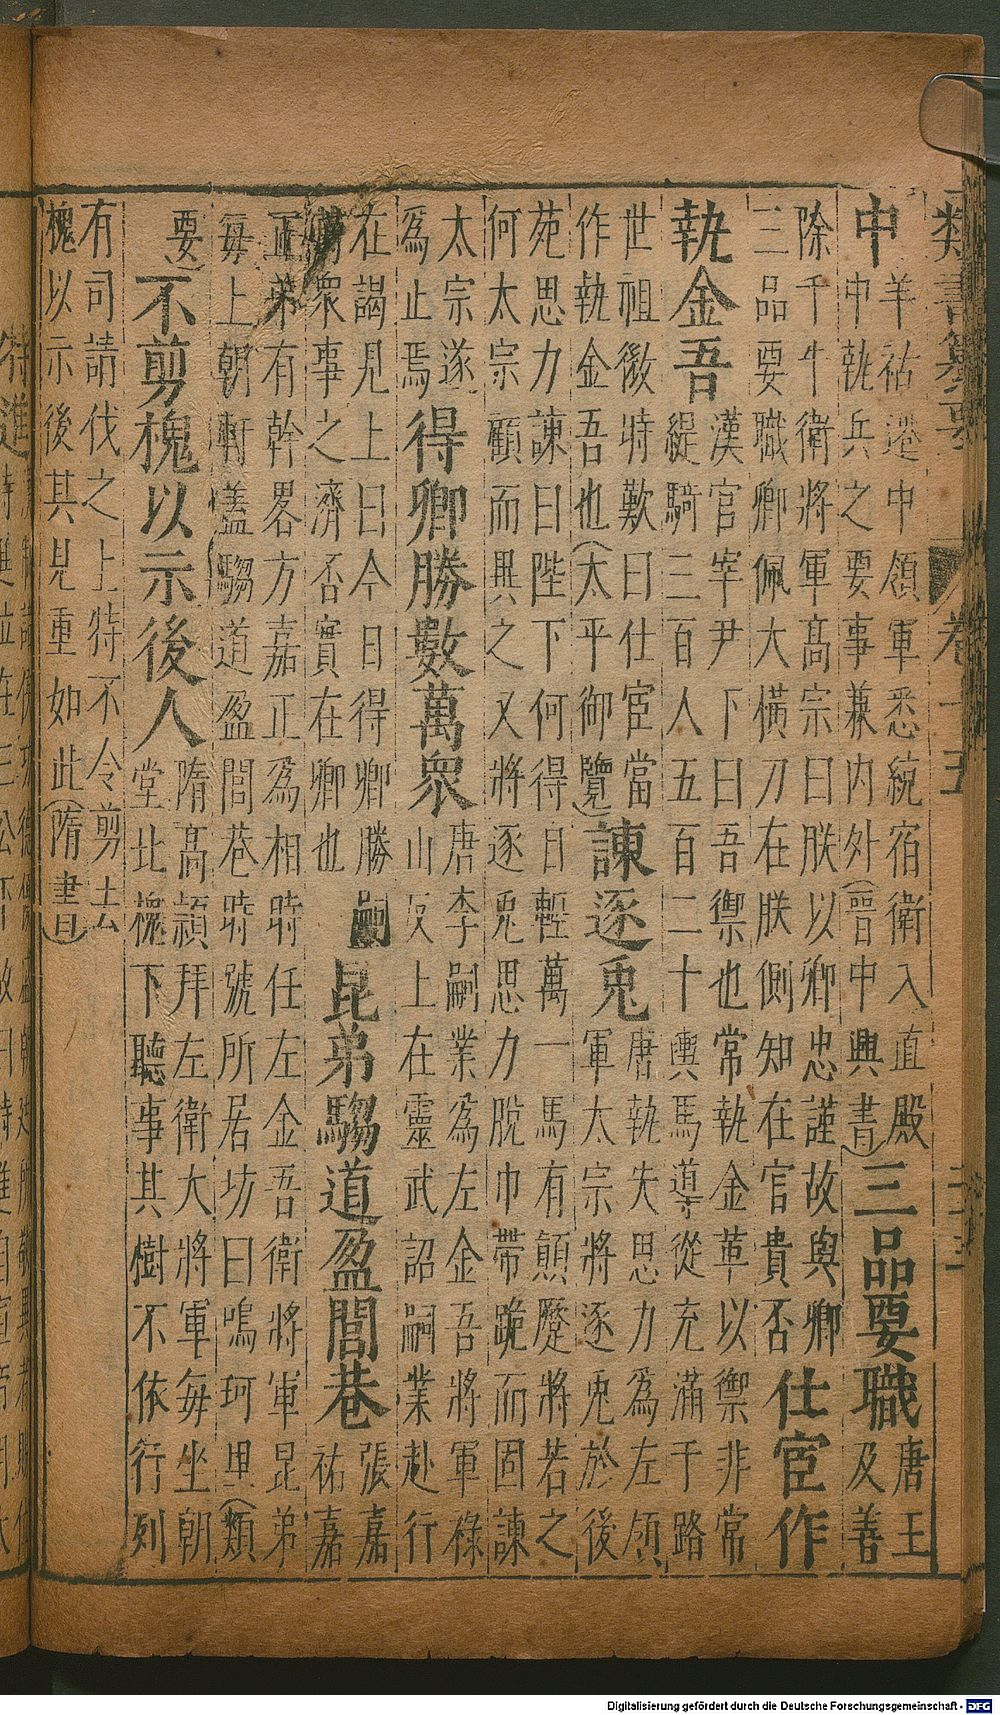 類書纂要 卷十五
中
羊祜遷中領軍悉統宿衛入直殿
中執兵之要事兼內外(晉中興書)
三品要職
唐王
及善
除千牛衛將軍高宗曰朕以卿忠謹故與卿
三品要職卿佩大橫刀在朕側知在官貴否
仕宦作
執金吾
漢官宰尹下曰吾禦也常執金革以禦非常
緹騎三百人五百二十輿馬導從充滿于路
世祖微時歎曰仕宦當
作執金吾也(太平御覽)
諫逐兎
唐執失思力為左領
軍太宗將逐兎於後
苑思力諫曰陛下何得自輕萬一馬有顛蹷將若之
何太宗顧而異之又將逐兎思力脫巾帶跪而固諫
太宗遂
為止焉
得卿勝數萬衆
唐李嗣業為左金吾將軍祿
山反上在靈武詔嗣業赴行
在謁見上曰今日得卿勝
萬衆事之濟否實在卿也
昆弟騶道盈閭巷
張嘉
祐嘉
正弟有幹畧方嘉正為相時任左金吾衛將軍昆弟
每上朝軒蓋騶道盈閭巷時號所居坊曰鳴珂里(類
要)
不剪槐以示後人
隋高熲拜左衛大將軍每坐朝
堂北槐下聽事其樹不依行列
有司請伐之上特不令剪去
槐以示後其見重如此(隋書)
Digitalisierung gefördert durch die Deutsche Forschungsgemeinschaft - DFG